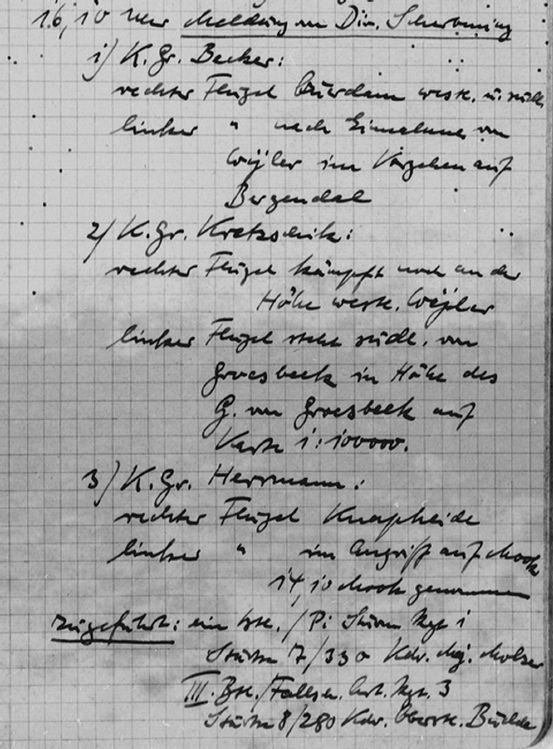 16,10 Uhr Meldung von Div. Scherbening
1) K.Gr. Becker:
rechter Flügel westl. u. südl.
linker " nach Einnahme von
Wyler im Vorgehen auf
Bergendal
2) K.Gr. Kretzschik:
rechter Flügel kämpft noch an der
Höhe westl. Wyler
linker Flügel steht südl. von
Groesbeek in Höhe des
G. von Groesbeek auf
Karte 1:100000.
3) K.Gr. Herrmann:
rechter Flügel Knapheide
linker " im Angriff auf Mook
14,10 Mook genommen
Zugeführt: ein Btl. /Pi. Sturm Rgt 1
Stärke 7/330 Kdr. Maj. Molzer
III. Btl./Fallsch. Art. Rgt. 3
Stärke 8/280 Kdr. Oberstl.